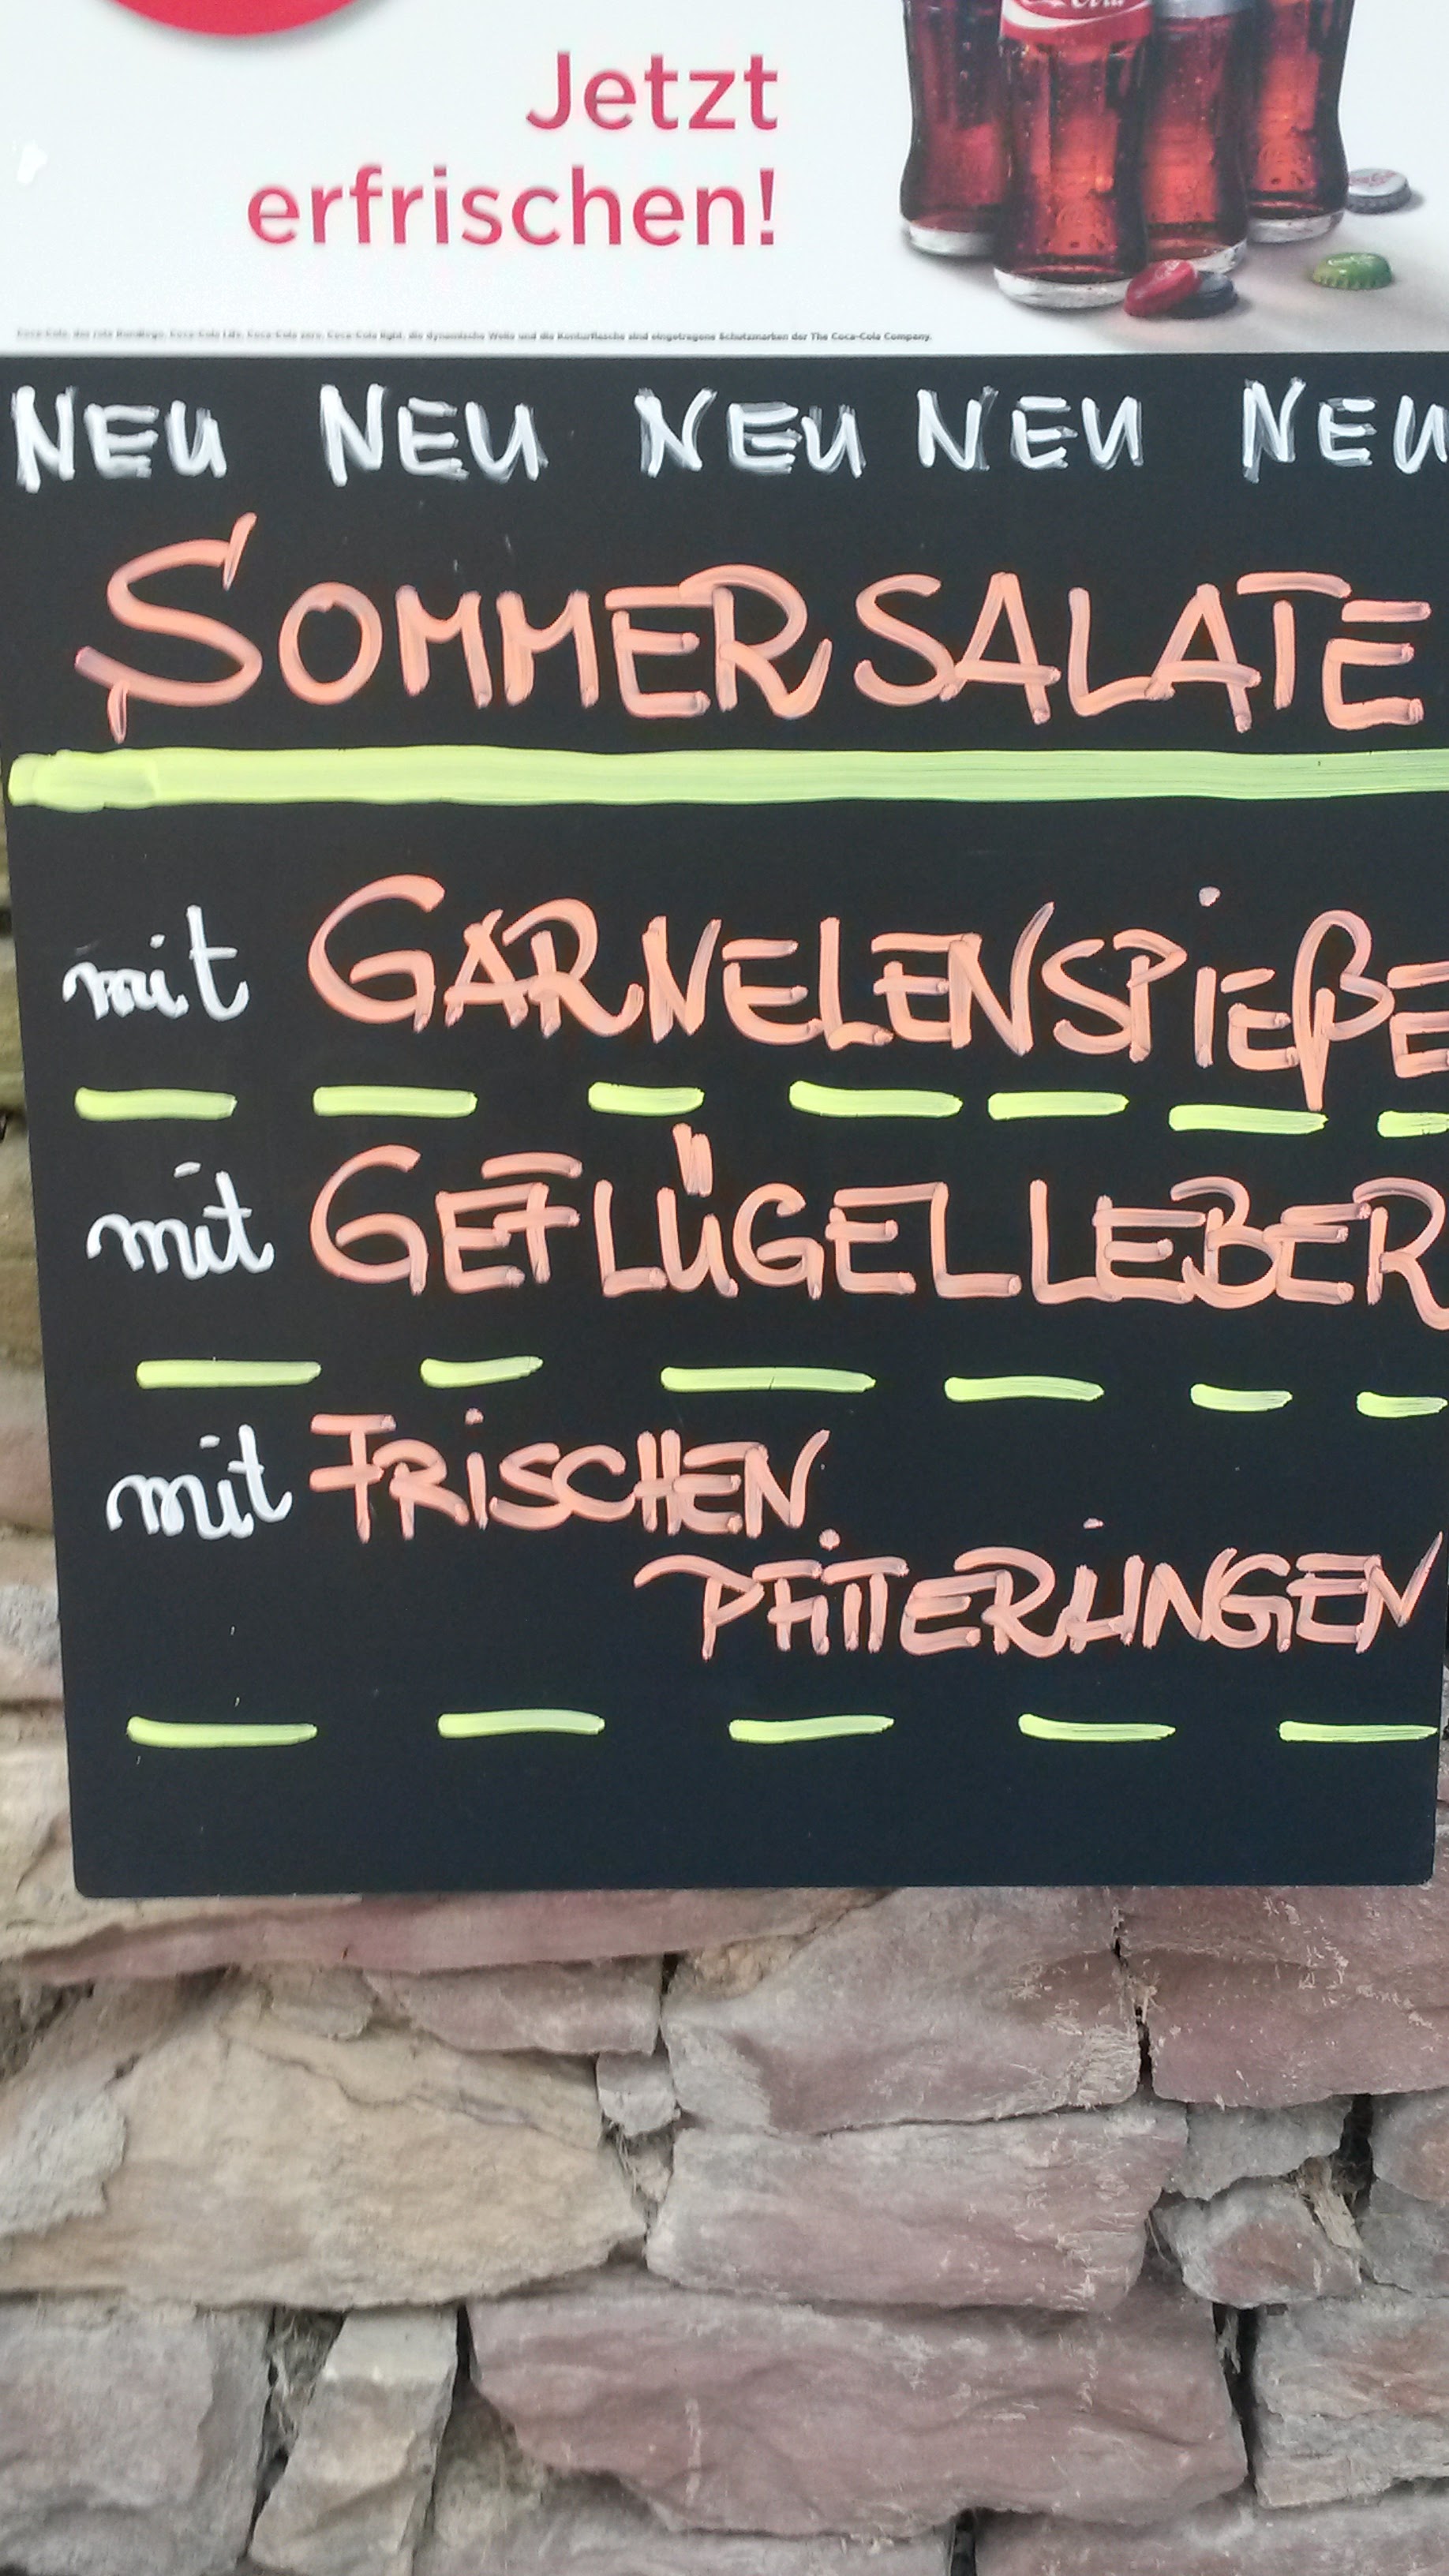 Jetzt
erfrischen!
Coca-Cola, das rote Rundlogo, Coca-Cola Life, Coca-Cola zero, Coca-Cola light, die dynamische Welle und die Konturflasche sind eingetragene Schutzmarken der The Coca-Cola Company.
NEU NEU NEU NEU NEU
SOMMERSALATE
mit GARNELENSPIEßE
mit GEFLÜGELLEBER
mit FRISCHEN
PFITTERLINGEN